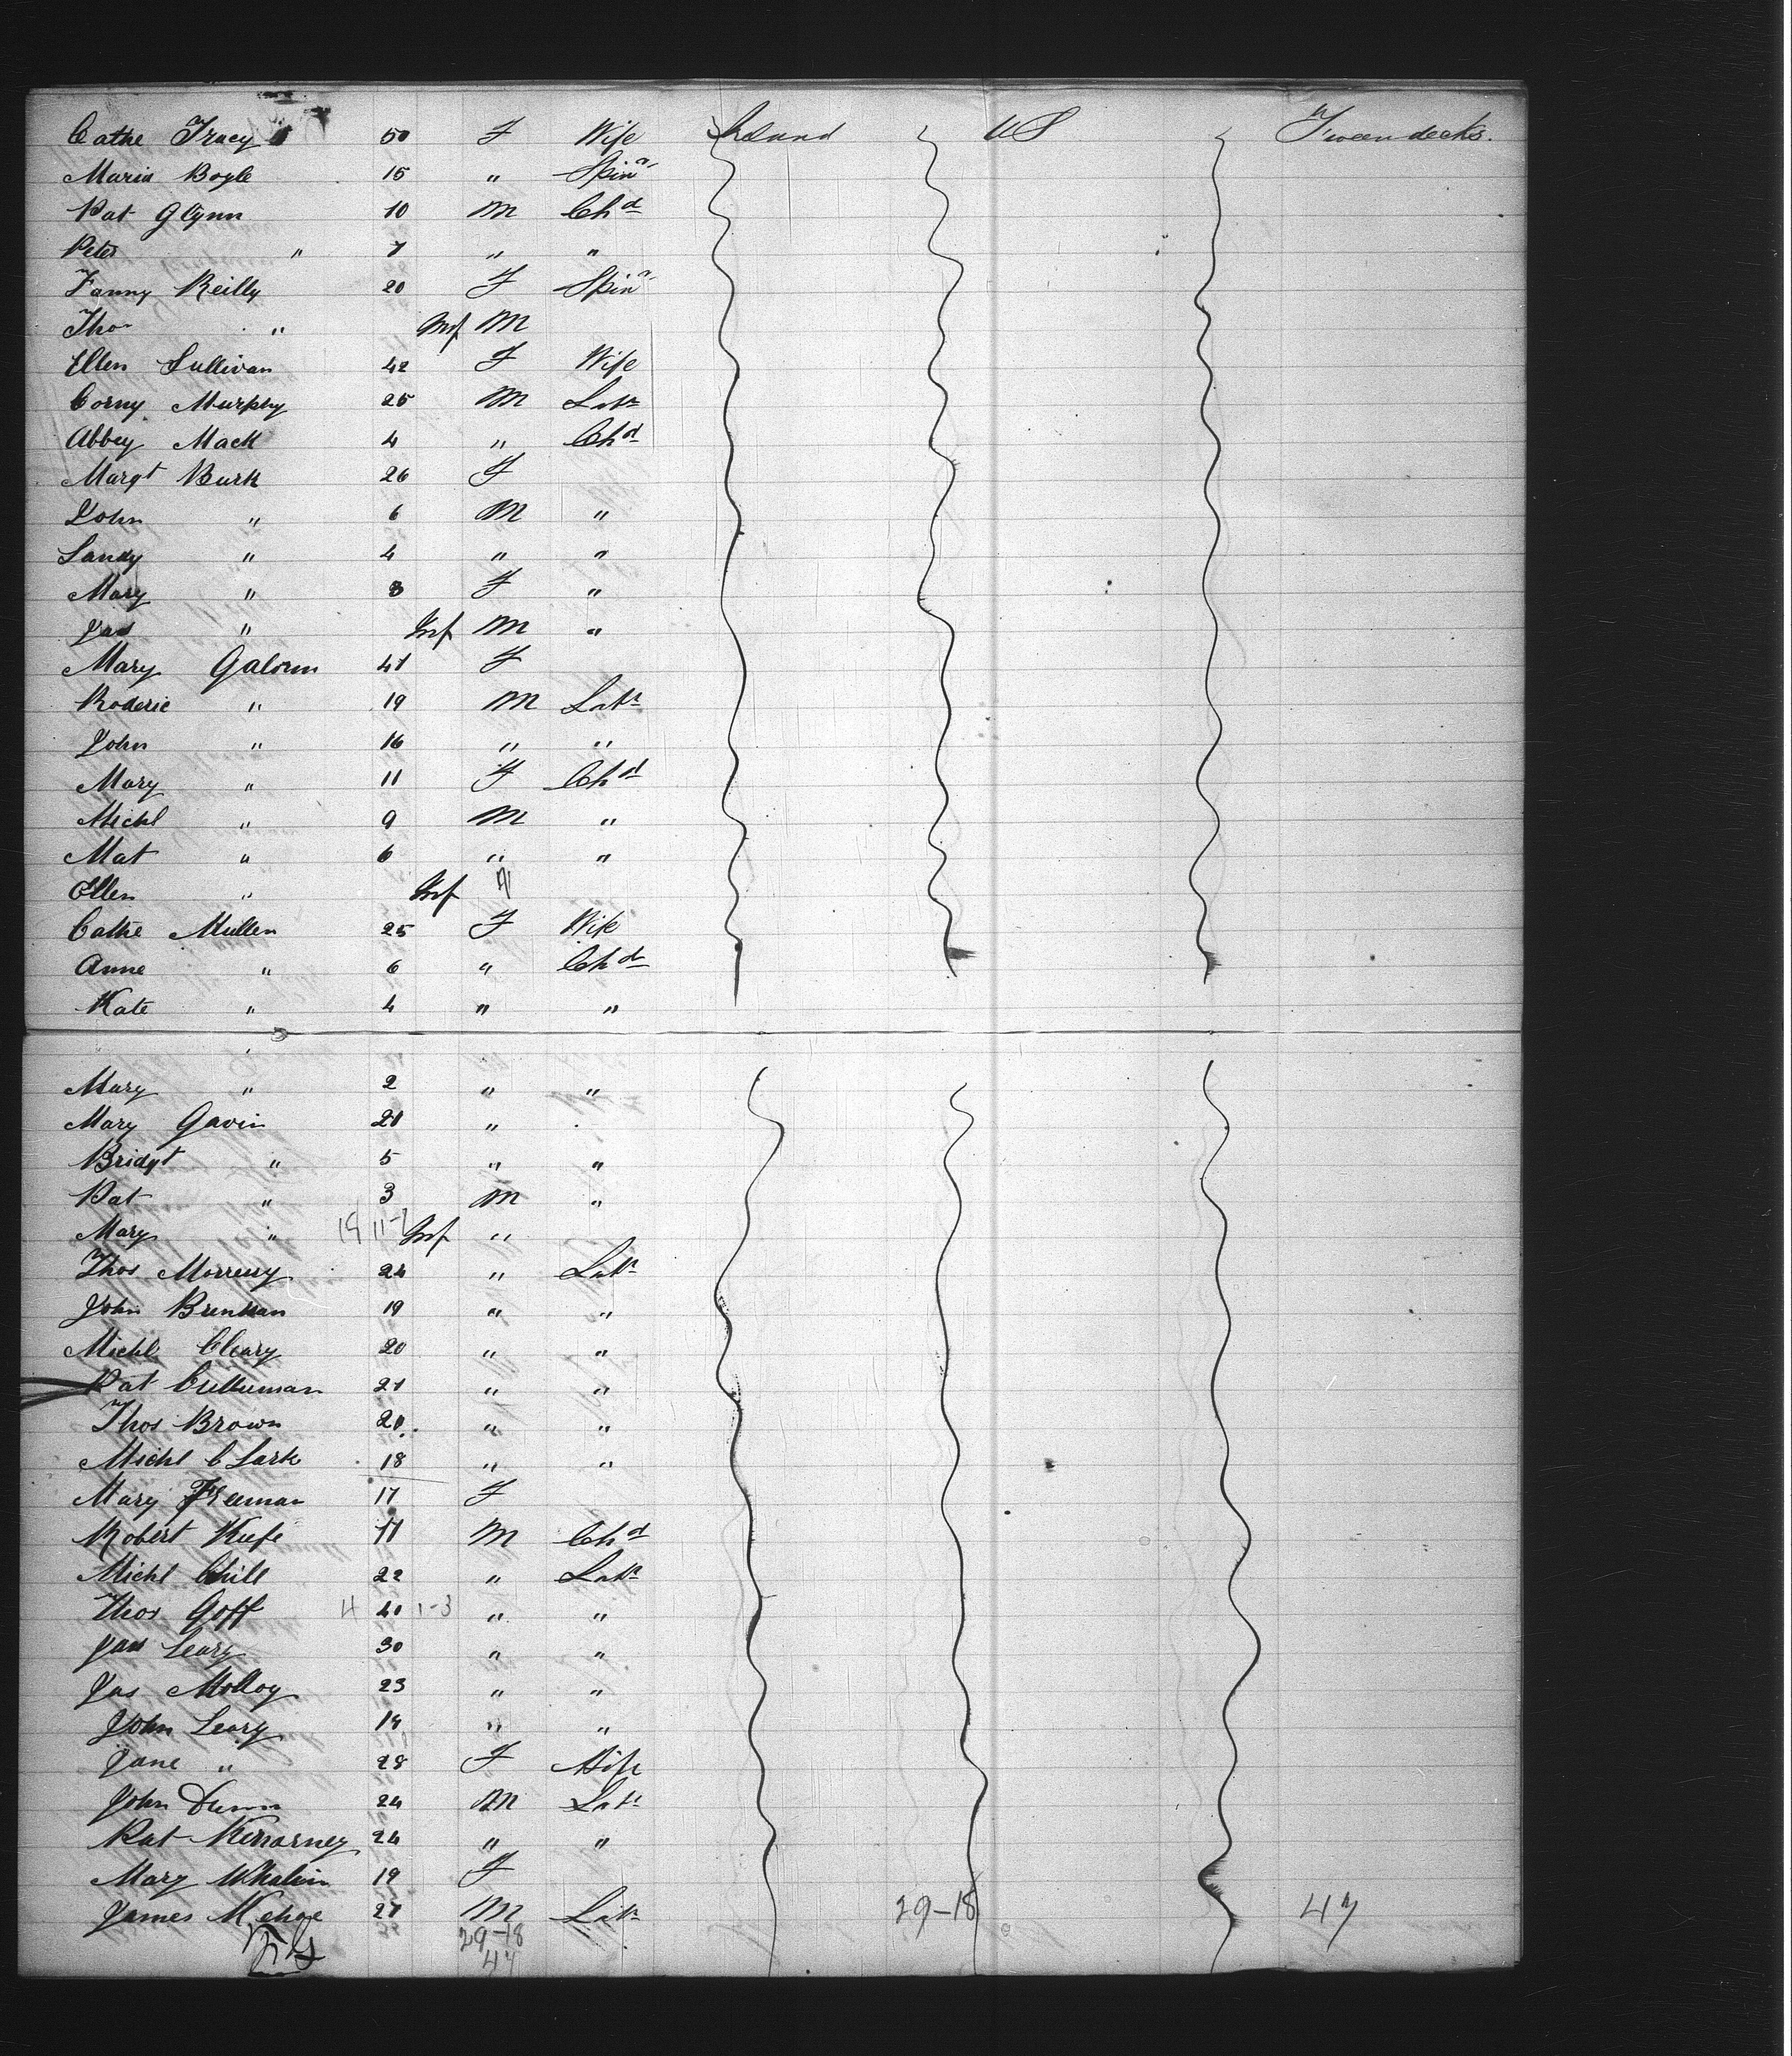 Cathe Tracy 50 F Wife Ireland US Tween decks.
Maria Boyle 15 " Spinr
Pat Glynn 10 M Chd
Peter " 7 " "
Fanny Reilly 20 F Spinr
Thos " Inf M
Ellen Sullivan 42 F Wife
Corny Murphy 25 M Labr
Abbey Mack 4 " Chd
Margt Burk 26 F
John " 6 M "
Sandy " 4 " "
Mary " 3 F "
Jas " Inf M "
Mary Galvin 47 F
Roderic " 19 M Labr
John " 16 " "
Mary " 11 F Chd
Michl " 9 M "
Mat " 6 " "
Ellen " Inf
Cathe Mullen 25 F Wife
Anne " 6 " Chd
Kate " 4 " "
Mary " 2 " "
Mary Gavin 21 "
Bridgt " 5 " "
Pat " 3 M "
Mary " 19 11-7 Inf "
Thos 24 " Labr
John Brennan 19 " "
Michl Cleary 20 " "
Pat 21 " "
Thos Brown 20 " "
Michl Clark 18 " "
Mary Freeman 17 F
Robert Keefe 11 M Chd
Michl 22 " Labr
Thos Goff 4 40 1-3 " "
Jas Leary 30 " "
Jas Molloy 23 " "
John Leary 19 " "
Jane " 28 F Wife
John Dunn 24 M Labr
Pat 24 " "
Mary Whalin 19 F
James Kehoe 27 M Labr 29-18 47
29-18
47